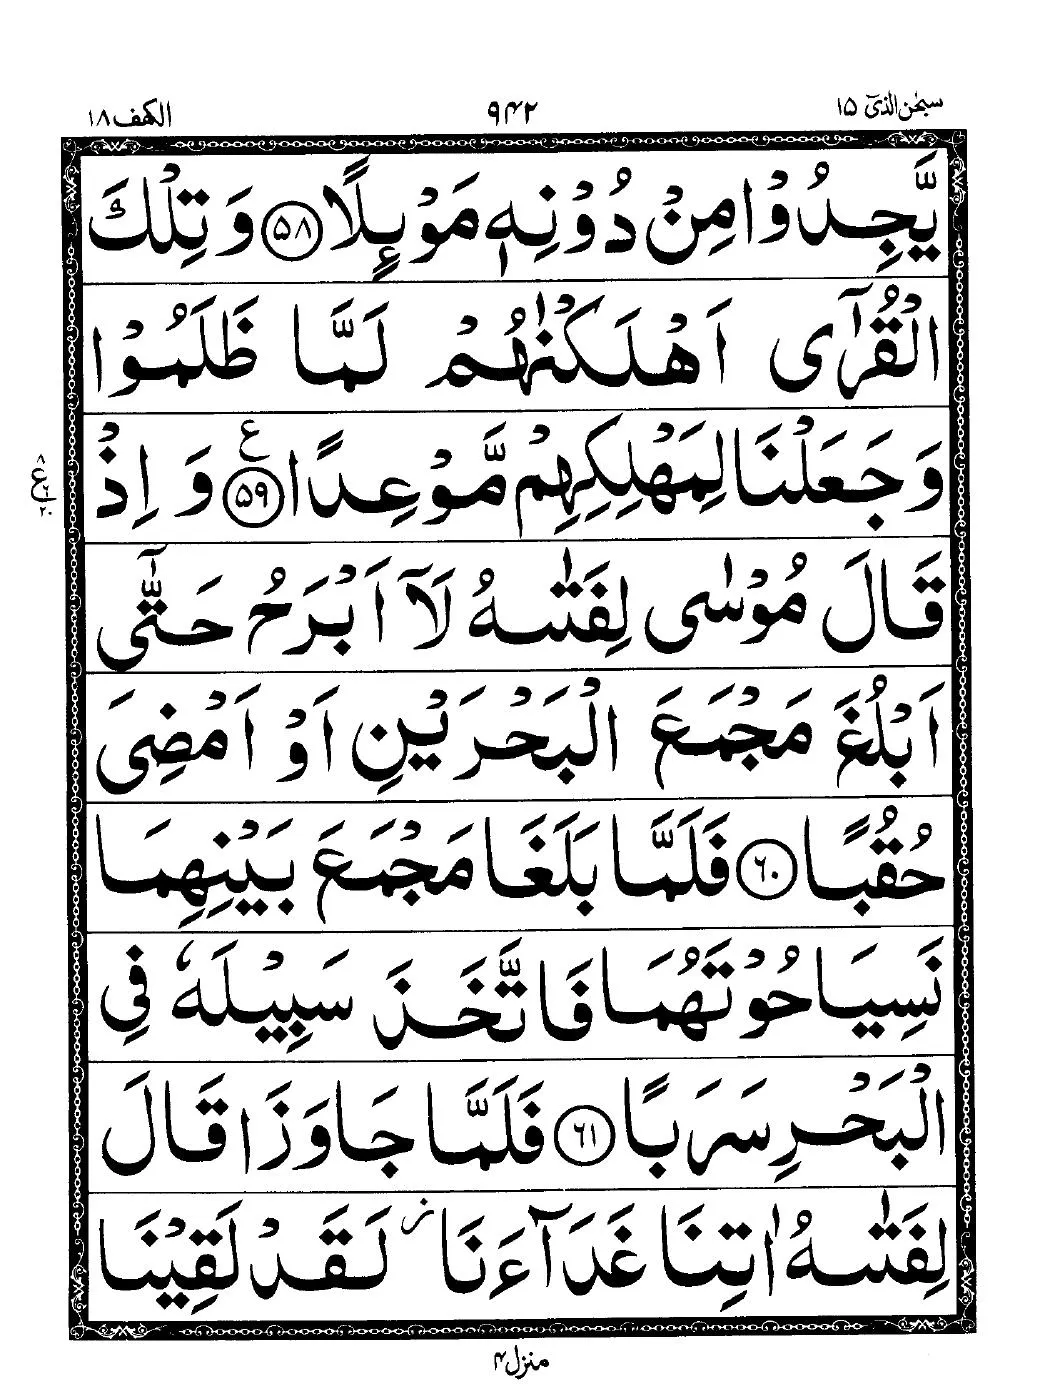 سبحٰن الذیٓ ۱۵
۹۴۲
الکهف ۱۸
یَّجِدُوْا مِنْ دُوْنِهٖ مَوْىِٕلًا ﴿۵۸﴾ وَ تِلْكَ
الْقُرٰۤى اَهْلَكْنٰهُمْ لَمَّا ظَلَمُوْا
وَ جَعَلْنَا لِمَهْلِكِهِمْ مَّوْعِدًا ﴿۵۹﴾ ع وَ اِذْ
ع ۸ ۲۰
قَالَ مُوْسٰى لِفَتٰىهُ لَاۤ اَبْرَحُ حَتّٰۤى
اَبْلُغَ مَجْمَعَ الْبَحْرَیْنِ اَوْ اَمْضِیَ
حُقُبًا ﴿۶۰﴾ فَلَمَّا بَلَغَا مَجْمَعَ بَیْنِهِمَا
نَسِیَا حُوْتَهُمَا فَاتَّخَذَ سَبِیْلَهٗ فِی
الْبَحْرِ سَرَبًا ﴿۶۱﴾ فَلَمَّا جَاوَزَا قَالَ
لِفَتٰىهُ اٰتِنَا غَدَآءَنَا ز لَقَدْ لَقِیْنَا
منزل ۴